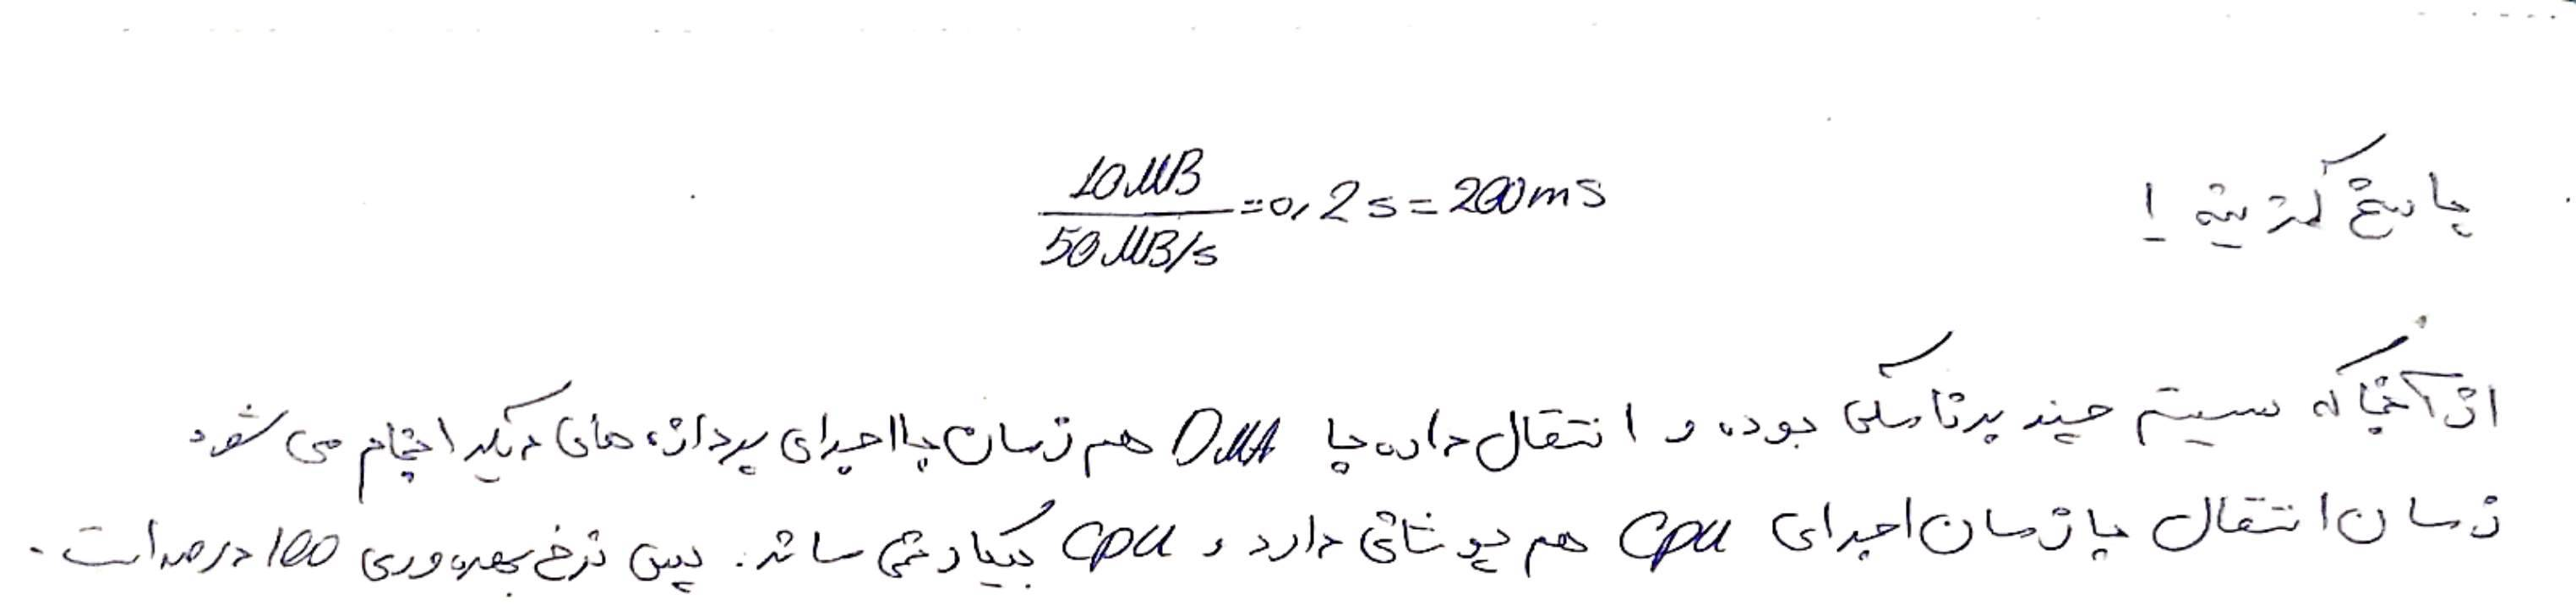 پاسخ گزینه 1
10MB / 50MB/s = 0,2s = 200ms
از آنجا که سیستم چند برنامگی بوده و انتقال داده با DMA هم زمان با اجرای پردازه های دیگر انجام می شود
زمان انتقال با زمان اجرای CPU هم پوشانی دارد و CPU بیکار نمی ماند. پس نرخ بهره وری 100 درصد است.